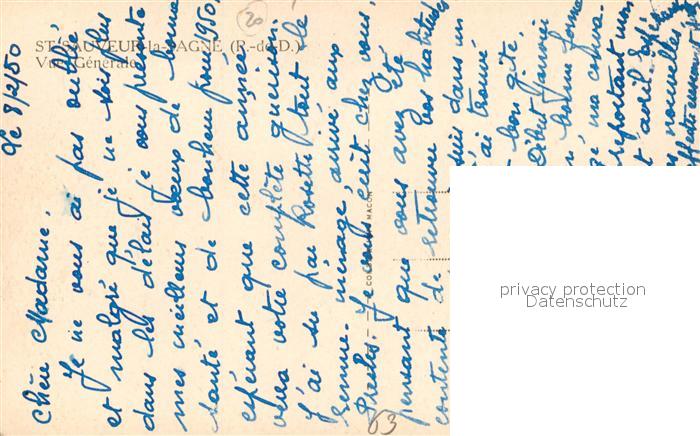 ST-SAUVEUR-la-SAGNE (P.-de-D.)
Vue Générale
20
Le 8/2/50
Chère Madame,
Je ne vous ai pas oublié
et malgré que je ne sois plus
dans les délais je vous présente
mes meilleurs vœux de bonne
santé et de bonheur pour 1950,
espérant que cette année
verra votre complète guérison.
J'ai su par Rosette tout le
remue-ménage, arrivé aux
Presles. Je vous écris chez vous,
pensant que vous avez été
contente de retrouver vos habitudes
suis dans un
j'ai trouvé
bon gîte.
début Janvier
bonne forme
ma conva-
reportant mon
avril
nouvelles
MACON
63
privacy protection
Datenschutz